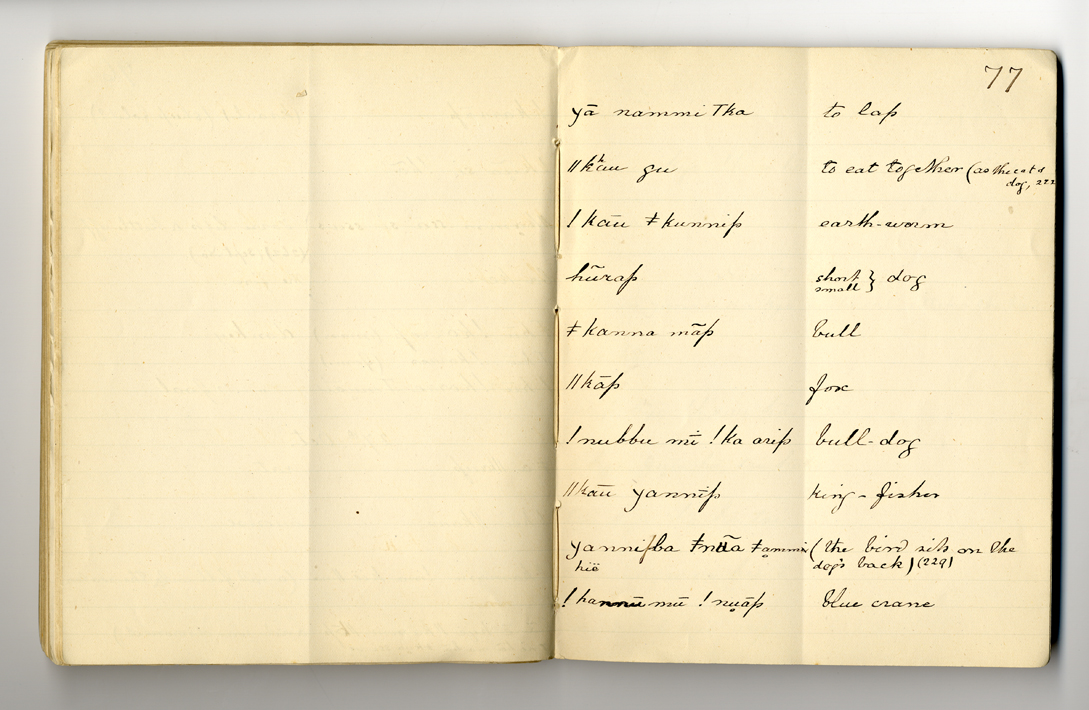 77
yā nammi Tka to lap
ǁkʰāu gu to eat together (as the cat &
dog, 222
! kāu ǂkunnip earth-worm
hūrap short } dog
small
ǂkanna māp bull
ǁkāp fox
!nubbu mī !ka arip bull-dog
ǁkāu yannip king-fisher
yannip ba ǂnūa ǂammi (the bird sits on the
hië dog's back) (229)
! mū ! nu̥āp blue crane